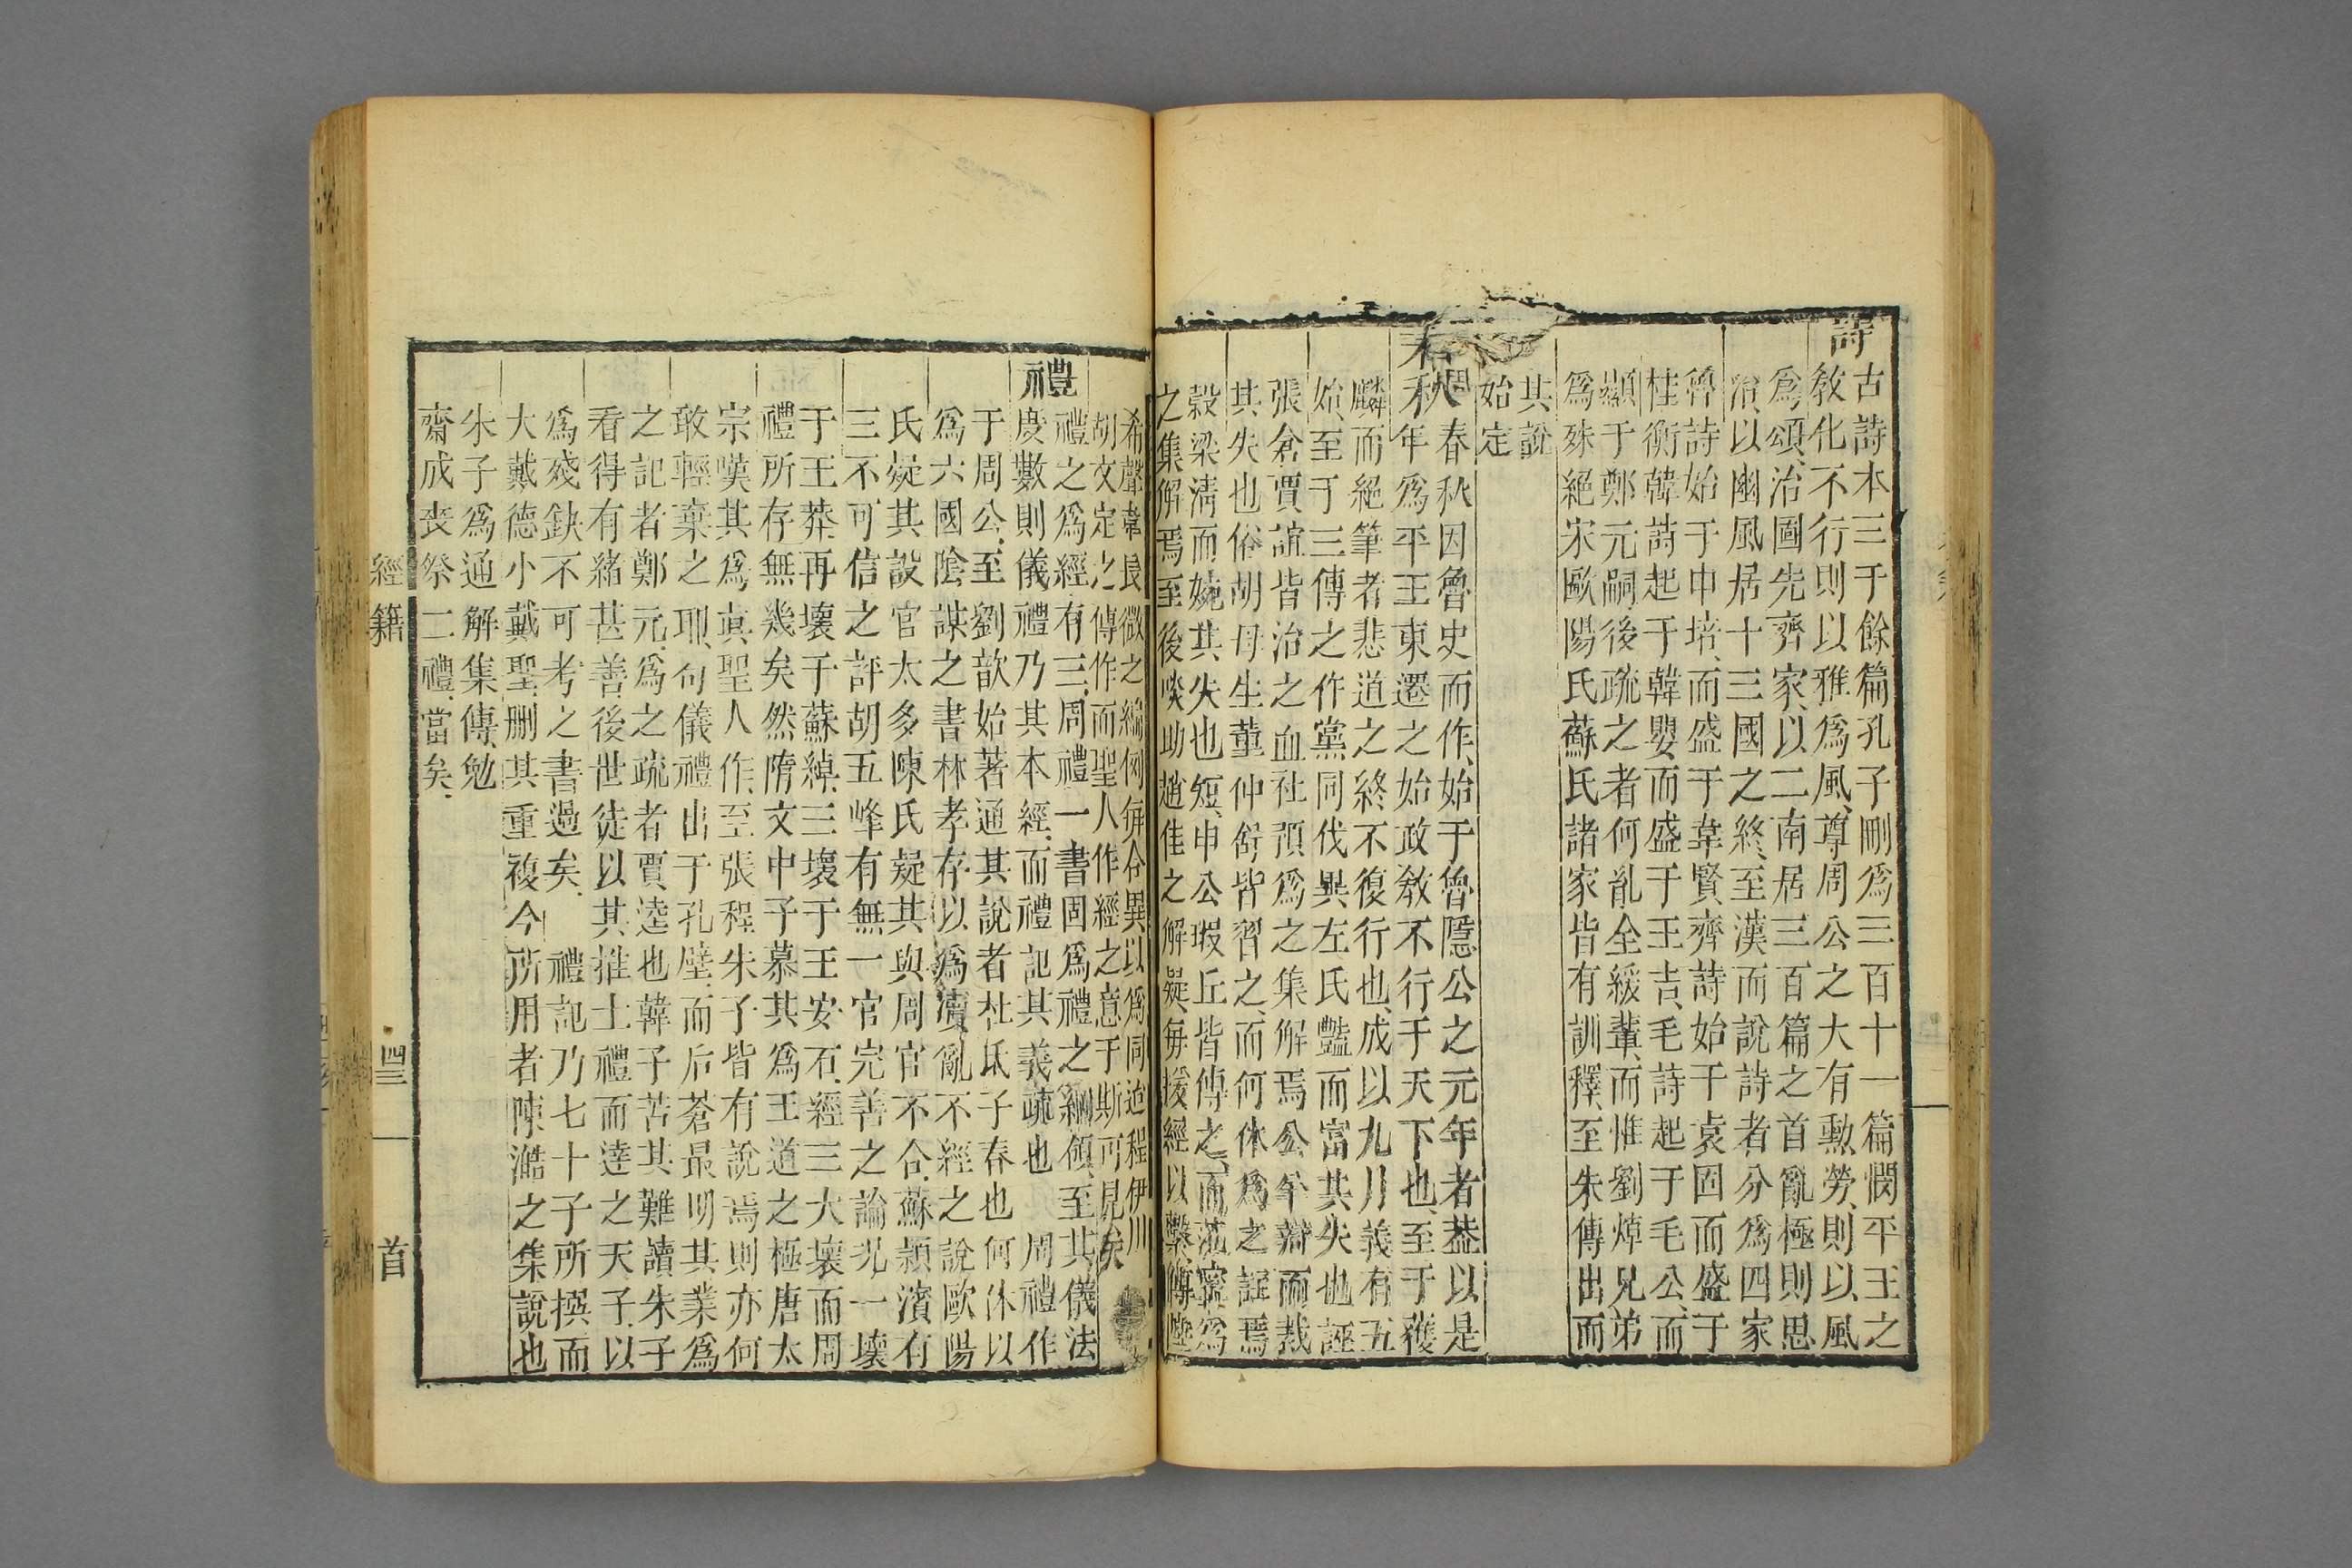 詩
古詩本三千餘篇孔子刪爲三百十一篇憫平王之
敎化不行則以雅爲風尊周公之大有勳勞則以風
爲頌治圖先齊家以二南居三百篇之首亂極則思
治以豳風居十三國之終至漢而說詩者分爲四家
魯詩始于申培而盛于韋賢齊詩始于袁固而盛于
桂衡韓詩起于韓嬰而盛于王吉毛詩起于毛公而
顯于鄭元嗣後疏之者何亂全緩輩而惟劉焯兄弟
爲殊絕宋歐陽氏蘇氏諸家皆有訓釋至朱傳出而
其說
始定
秋春秋因魯史而作始于魯隱公之元年者葢以是
年爲平王東遷之始政敎不行于天下也至于獲
麟而絕筆者悲道之終不復行也成以九月義有五
始至于三傳之作黨同伐異左氏豔而富其失也誣
張倉賈誼皆治之血社預爲之集解焉公羊辯而裁
其失也俗胡母生董仲舒皆習之而何休爲之註焉
榖梁淸而婉其失也短申公瑕丘皆傳之而范寗爲
之集解焉至後啖助趙佳之解疑毎援經以擊傳
希聲韋良微之編例毎合異以爲同迨程伊川
胡文定之傳作而聖人作經之意于斯可見矣
禮
禮之爲經有三周禮一書固爲禮之綱領至其儀法
度數則儀禮乃其本經而禮記其義疏也 周禮作
于周公至劉歆始著通其說者杜氐子春也何休以
爲六國陰謀之書林孝存以爲瀆亂不經之說歐陽
氏疑其設官太多陳氏疑其與周官不合蘇潁濱有
三不可信之評胡五峰有無一官完善之論况一壞
于王莽再壞于蘇綽三壞于王安石經三大壞而周
禮所存無幾矣然隋文中子慕其爲王道之極唐太
宗嘆其爲眞聖人作至張程朱子皆有說焉則亦何
敢輕棄之耶句儀禮出于孔壁而后蒼最明其業爲
之記者鄭元爲之疏者賈逵也韓子苦其難讀朱子
看得有緒甚善後世徒以其推士禮而達之天子以
爲殘缺不可考之書過矣 禮記乃七十子所撰而
大戴德小戴聖刪其重複今所用者陳澔之集說也
朱子爲通解集傳勉
齋成喪祭二禮當矣
經籍 四三 首